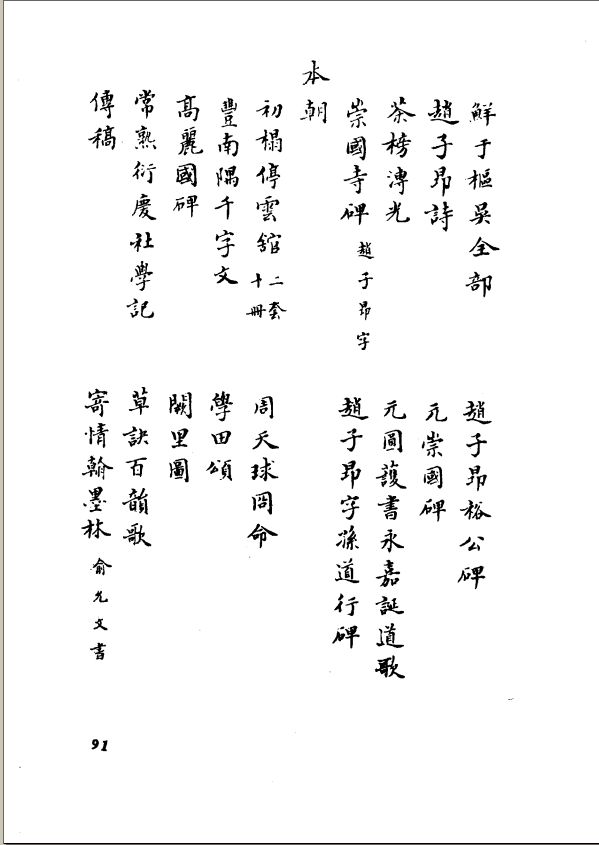 鮮于樞吳全部　趙子昻裕公碑
趙子昻詩　元崇國碑
茶榜溥光　元圓護書永嘉誕道歌
崇國寺碑 趙子昻字　趙子昻字孫道行碑
本朝
初榻停雲舘 二套十冊　周天球冏命
豐南隅千字文　學田頌
高麗國碑　闕里圖
常熟衍慶社學記　草訣百韻歌
傳稿　寄情翰墨林 俞允文書
91